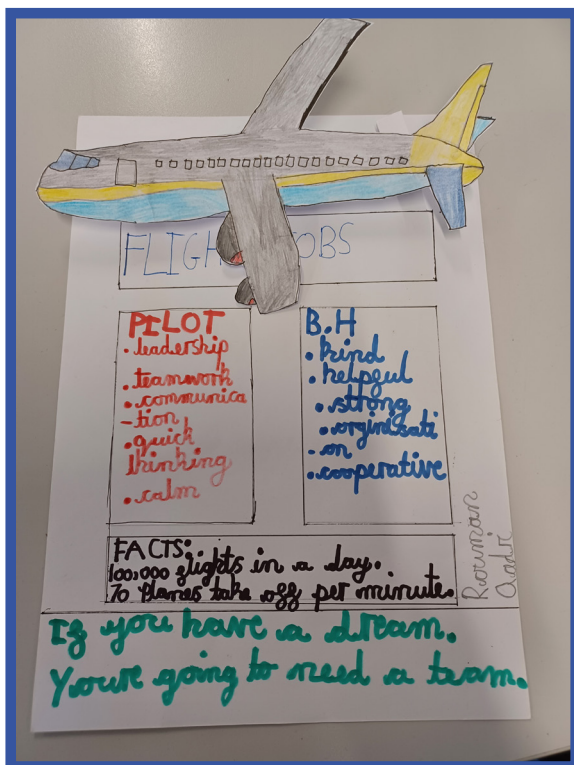 FLIGH OBS
PILOT
• leadership
• teamwork
• communica
-tion
• quick
thinking
• calm
B.H
• kind
• helpful
• strong
• orginisati
- on
• cooperative
FACTS:
100,000 flights in a day.
70 planes take off per minute.
If you have a dream.
You're going to need a team.
Aadi